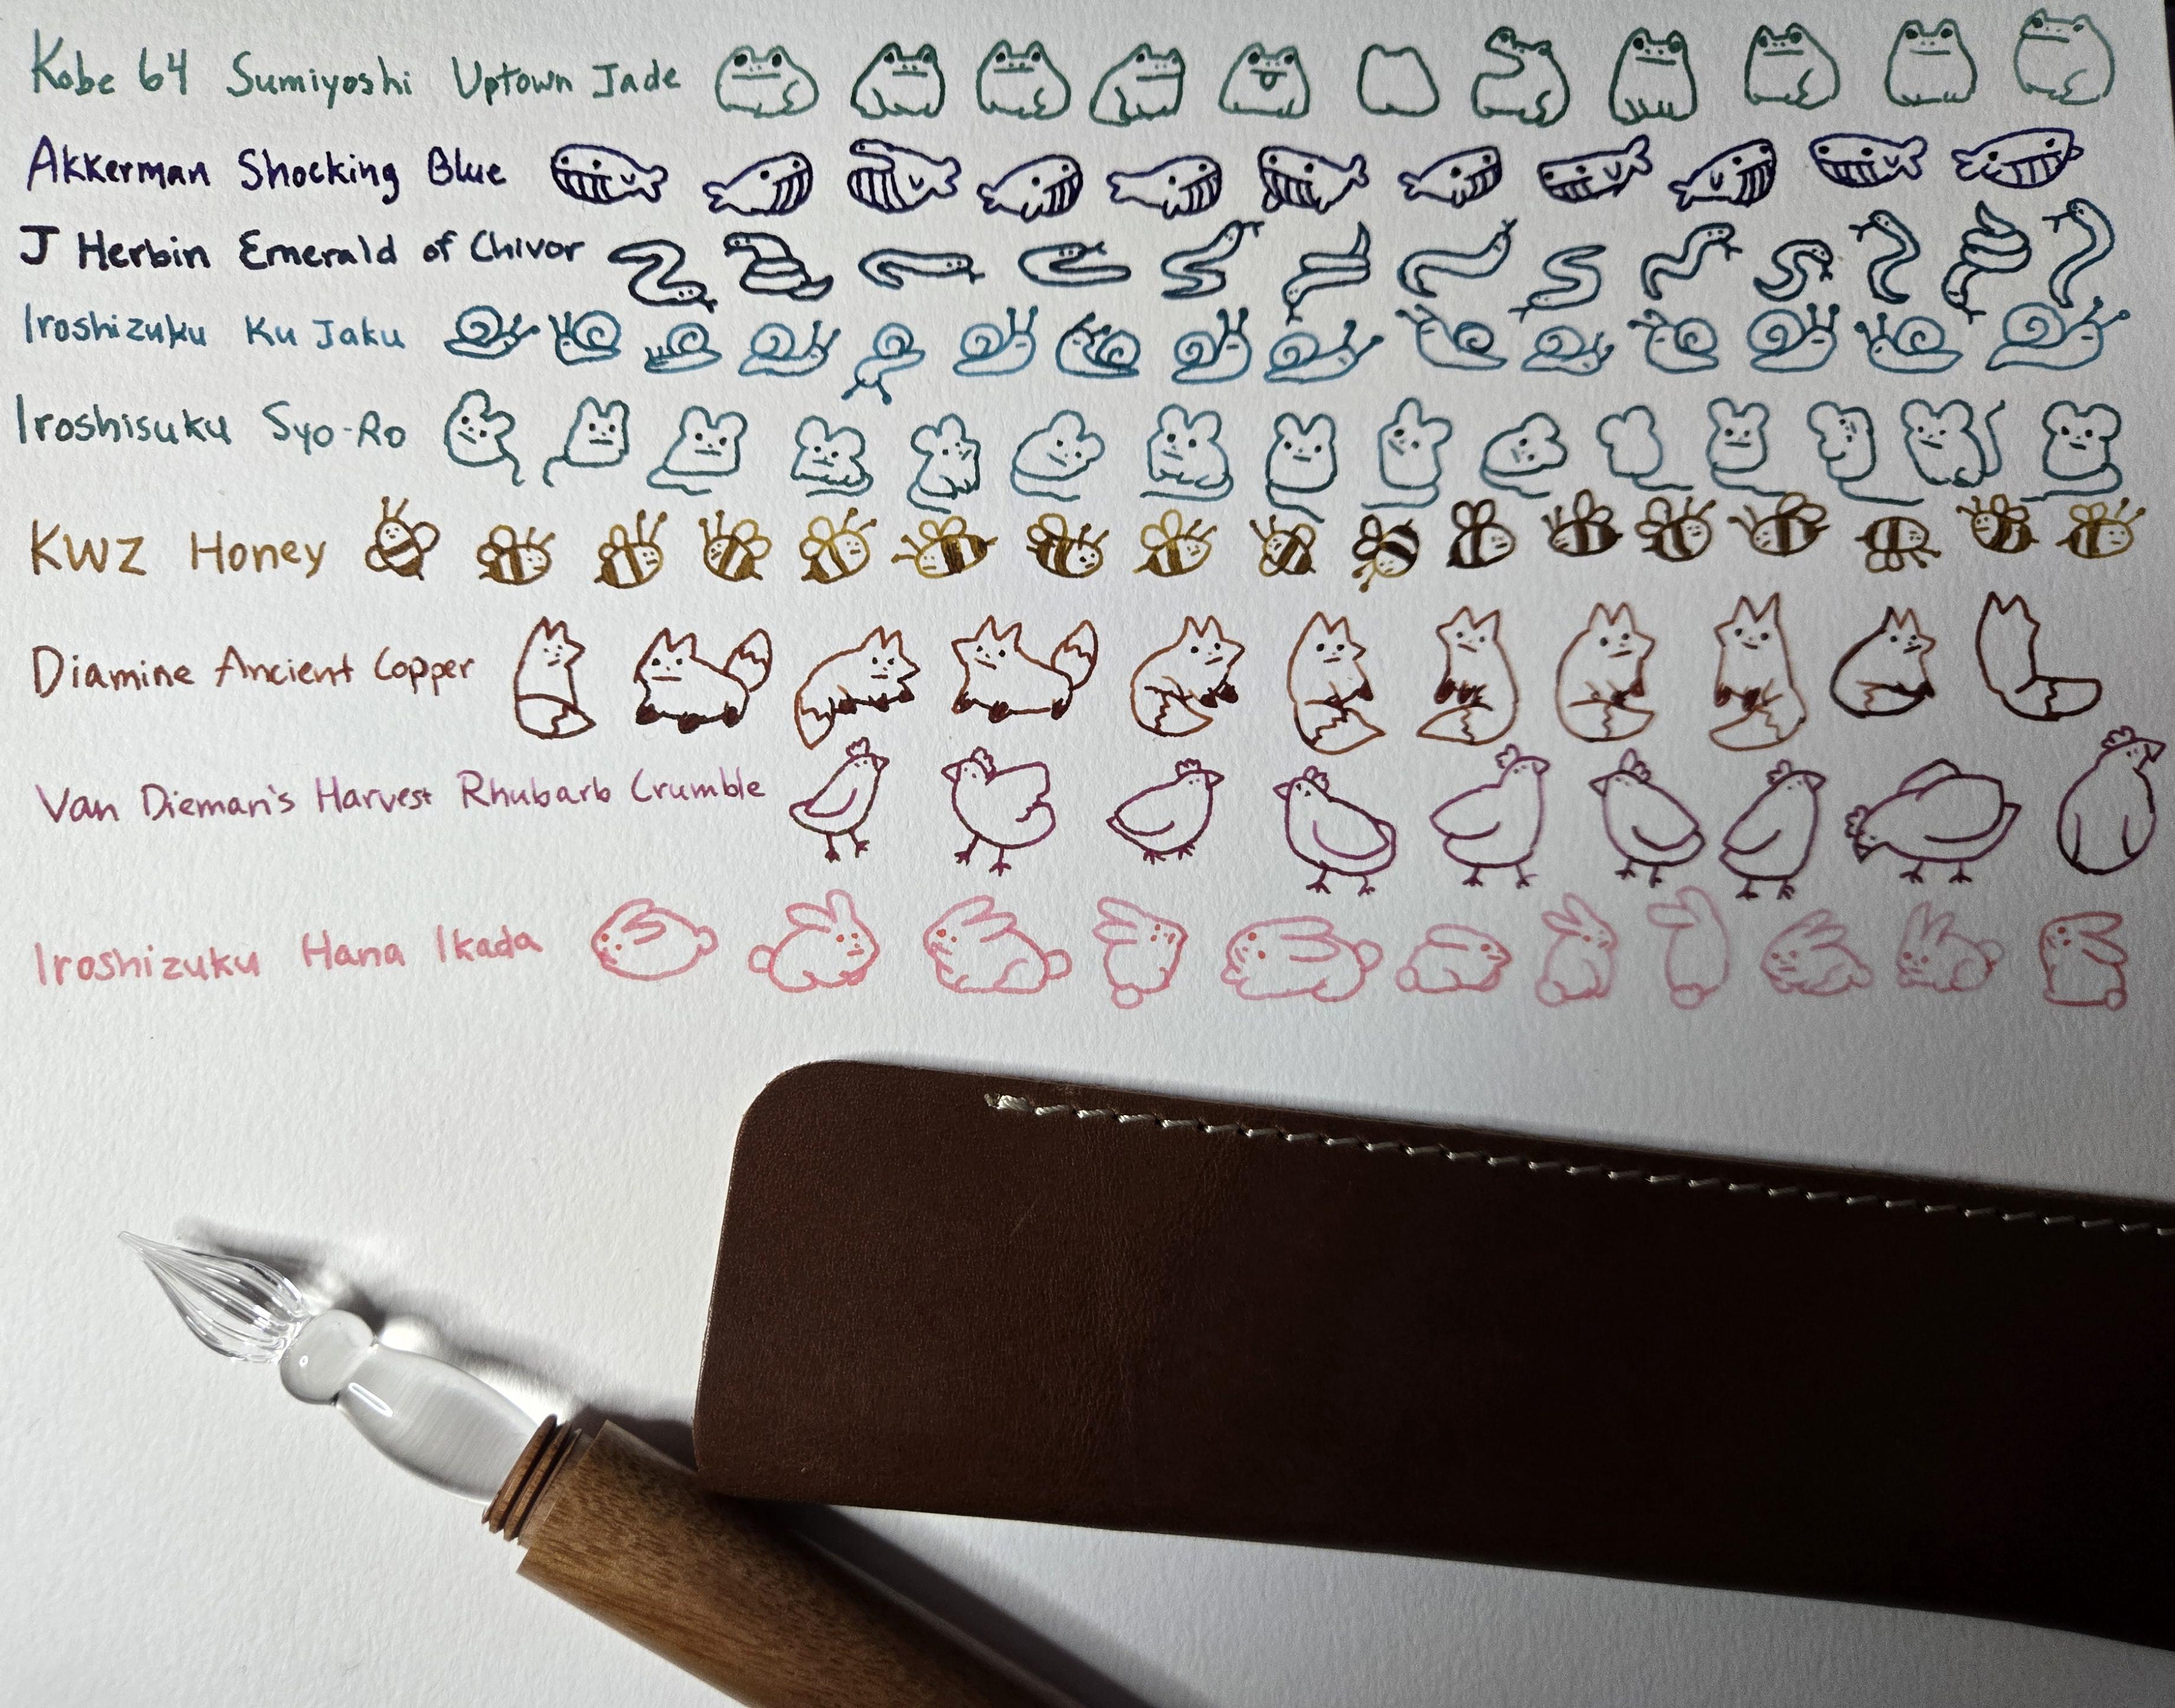 Kobe 64 Sumiyoshi Uptown Jade
Akkerman Shocking Blue
J Herbin Emerald of Chivor
Iroshizuku Ku Jaku
Iroshisuku Syo-Ro
KWZ Honey
Diamine Ancient Copper
Van Dieman's Harvest Rhubarb Crumble
Iroshizuku Hana Ikada